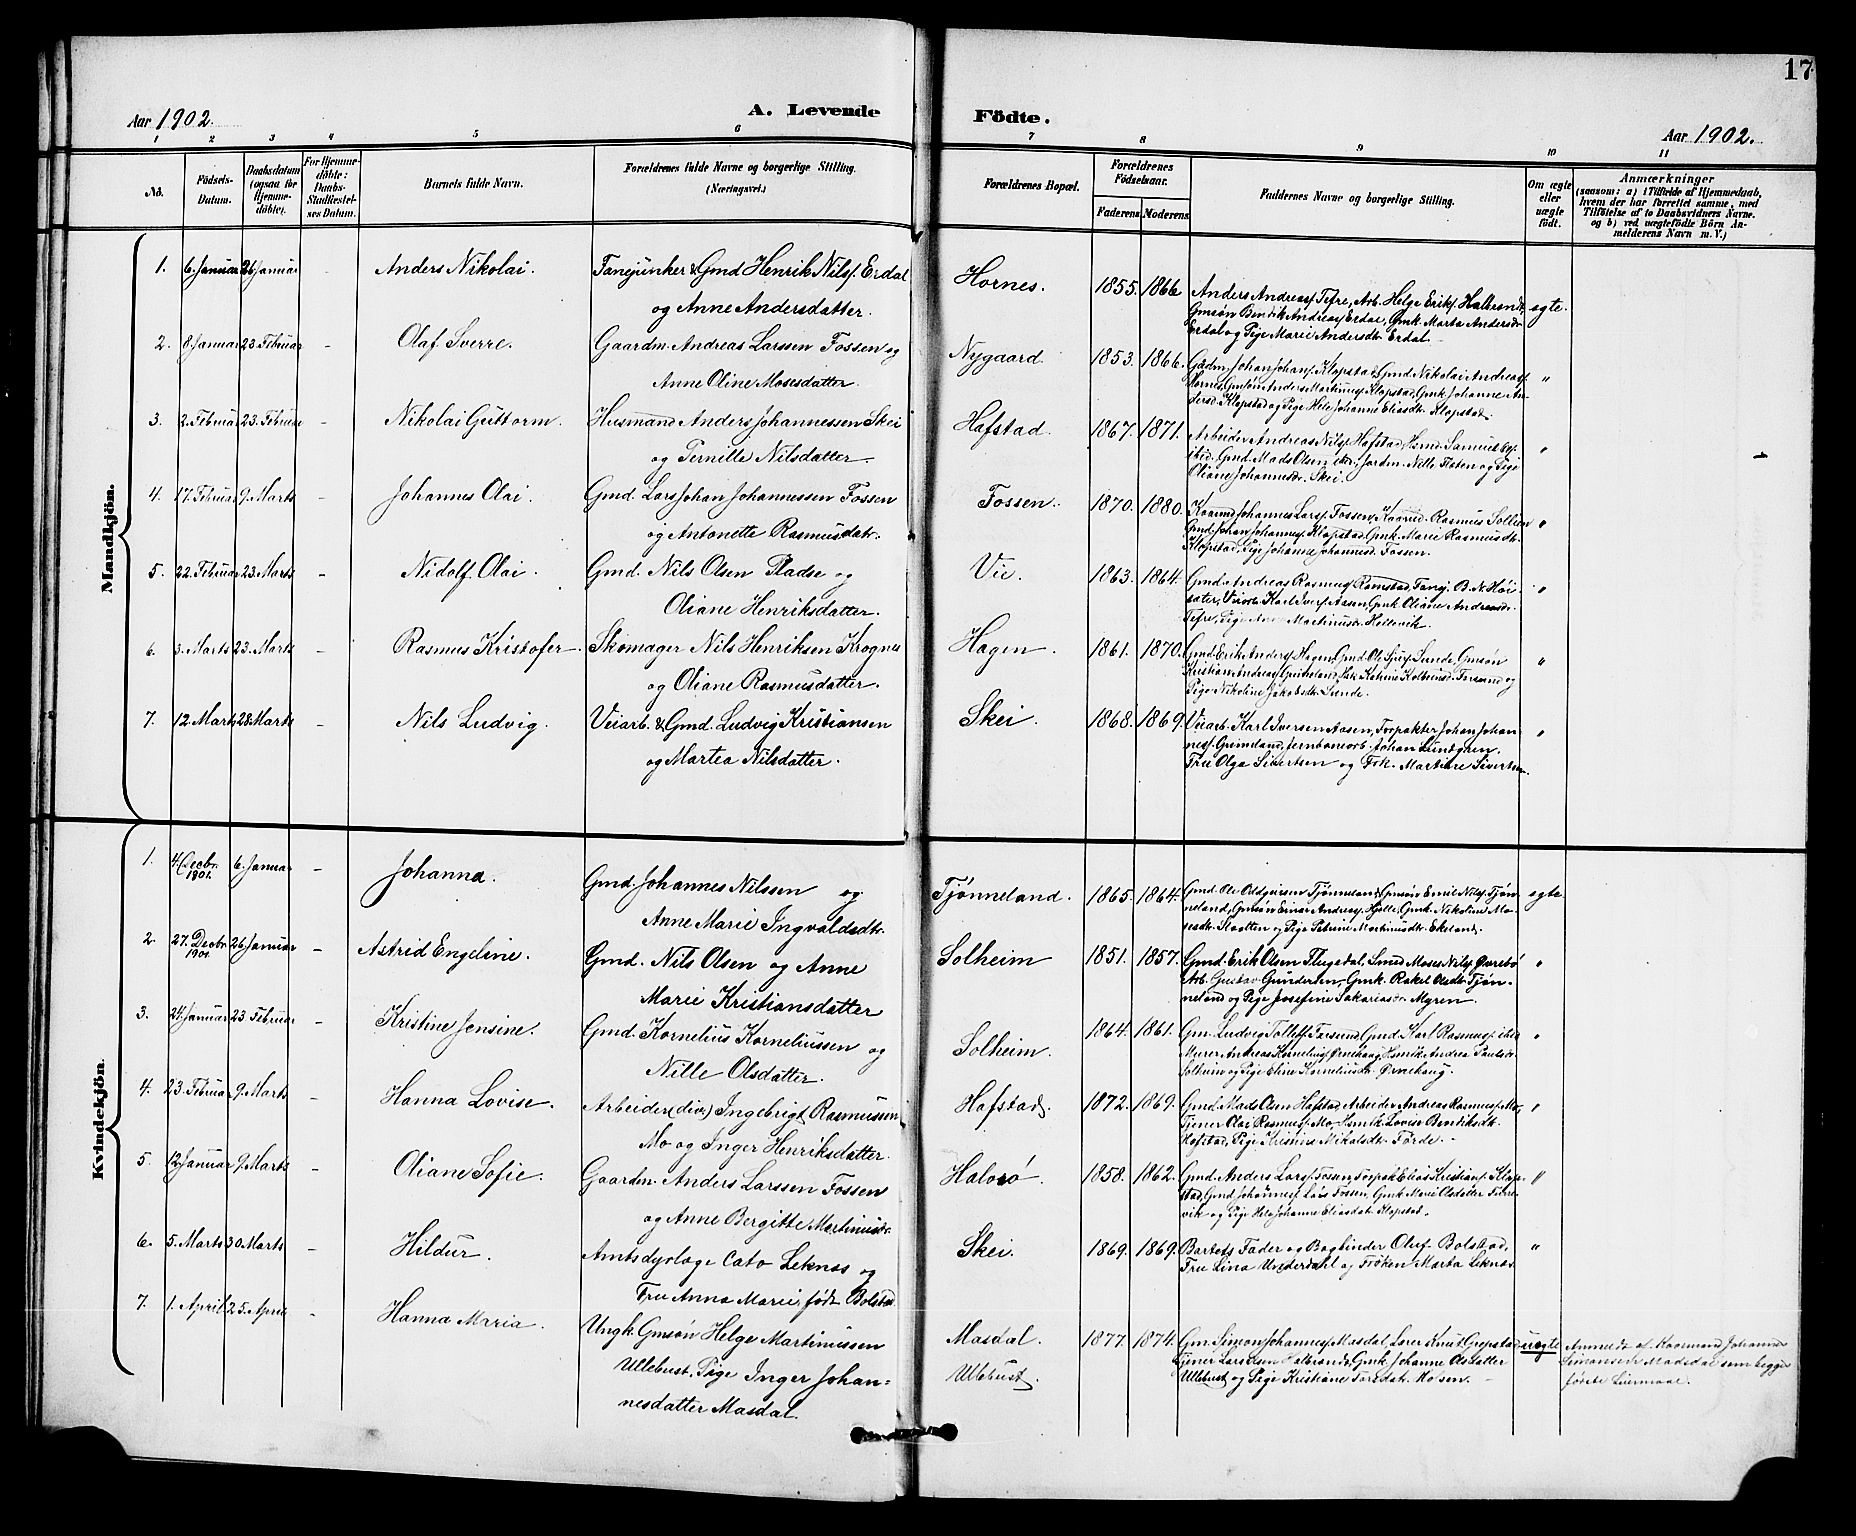 17
Aar 1902.
A. Levende
Födte.
Aar 1902.
1 2 3 4 5 6 7 8 9 10 11
No.
Födsels-Datum.
Daabsdatum (ogsaa for Hjemmedöbte).
For Hjemmedöbte: Daabs-Stadfæstelses Datum.
Barnets fulde Navn.
Forældrenes fulde Navne og borgerlige Stilling. (Næringsvei.)
Forældrenes Bopæl.
Forældrenes Födselsaar.
Faderens Moderens
Faddernes Navne og borgerlige Stilling.
Om ægte eller uægte födt.
Anmærkninger
(saasom: a) i Tilfælde af Hjemmedaab, hvem der har forrettet samme, med Tilföielse af to Daabsvidners Navne. og b) ved uægtefödte Börn Anmelderens Navn m. V.)
Mandkjön.
1. 6 Januar 26 Januar - Anders Nikolai. Fanejunker & Gmd Henrik Nils. Erdal
og Anne Andersdatter. Hornes. 1855. 1866 Anders Andreas. Tefre, Arb. Helge Eriks. Halbrendt, ægte.
Gmsøn Bendik Andreas. Erdal, Gmk. Marta Andersdr.
Erdal og Pige Marie Andersdtr. Erdal.
2. 8 Januar 23 Februar - Olaf Sverre. Gaardm. Andreas Larssen Fossen og
Anne Oline Mosesdatter. Nygaard. 1853. 1866. Gadm. Johan Johans. Klopstad, Gmd. Nikolai Andreas. "
Hornes, Gmsøn Anders Martinus. Klopstad, Gmk Johanne An-
dersd. Klopstad og Pige Hele Johanne Eliasdtr. Klopstad.
3. 2. Februar 23. Februar - Nikolai Guttorm. Husmand Anders Johannessen Skei
og Pernille Nilsdatter. Hafstad. 1867. 1871. Arbeider Andreas Nils. Hafstad, Hsmd. Samuel "
Gmd. Mads Olsen Jordm. Nille Floten og Pige
Oliane Johannesdr. Skei.
4. 17. Februar 9. Marts - Johannes Olai. Gmd. Lars Johan Johannessen Fossen
og Antonette Rasmusdatr. Fossen. 1870. 1880. Kaarmd Johannes Lars. Fossen, Kaarmd. Rasmus Solheim "
Gmd. Johan Johannes. Klopstad, Gmk. Marie Rasmusdtr.
Klopstad, Pige Johanne Johannesd. Fossen.
5. 22. Februar 23. Marts - Nidolf Olai. Gmd. Nils Olsen Pladse og
Oliane Henriksdatter. Vie. 1863. 1864. Gmd. Andreas Rasmus. Ramstad, Fanej. B. N. Høi- "
sater, Veiarb. Karl Ivers. Aasen, Gmk. Oliane Andreasdr.
Tefre, Pige Martinusdr. Hellevik.
6. 3. Marts 23. Marts - Rasmus Kristofer. Skomager Nils Henriksen Krognes
og Oliane Rasmusdatter. Hagen. 1861. 1870. Gmd. Erik Anders. Hagen, Gmd. Ole Sjurs. Sunde, Gmsøn "
Kristian Andreas. Grimeland, og
Pige Nikoline Jakobsdtr. Sunde.
7. 12. Marts 28. Marts - Nils Ludvig. Veiarb. & Gmd. Ludvig Kristiansen
og Martea Nilsdatter. Skei. 1868. 1869. Veiarb. Karl Iversen Aasen, Forpakter Johan Johan- "
nes. Grimeland, Jernbanearb. Johan Lundgren.
Fru Olga Sivertsen og Frk. Martine Sivertsen.
Kvindekjön.
1. 4. Decbr. 1901. 6. Januar - Johanna. Gmd. Johannes Nilssen og
Anne Marie Ingvaldsdtr. Tjønneland. 1865. 1864. Gmd. Ole Oddgeirsen Tjønneland, Gmsøn Emil Nils. Tjøn- ægte
neland, Gmsøn Einar Andreas. Hjelle, Gmk. Nikoline Mo-
sesdr. Slaatten og Pige Petrine Martinusdtr. Ekeland.
2. 27. Decbr. 1901. 26. Januar - Astrid Engeline. Gmd. Nils Olsen og Anne
Marie Kristiansdatter Solheim 1851. 1857. Gmd. Erik Olsen Flugedal, Smed Moses Nils. Øvrebø "
Arb. Gustav Gundersen, Gmk. Rakel Olsdr. Tjøn-
neland og Pige Josefine Sakariasdr. Myren.
3. 24. Januar 23 Februar - Kristine Jensine. Gmd. Kornelius Korneliussen og
Nille Olsdatter. Solheim. 1864. 1861. Gm. Ludvig Tollefs. Farsund, Gmd. Karl Rasmus. ibid. "
Murer Andreas Kornelius. Ørnehaug, Hsmk. Andrea Paulsdr.
Solheim og Pige Eline Korneliusdtr. Ørnehaug.
4. 23. Februar 9. Marts - Hanna Lovise. Arbeider (div.) Ingebrigt Rasmussen
Mo og Inger Henriksdatter. Hafstad. 1872. 1869. Gmd. Mads Olsen Hafstad, Arbeider Andreas Rasmus. Mo, "
Tjener Olai Rasmus. Mo, Hsmk. Lovise Bendiksdtr.
Hafstad, Pige Mikalsdtr. Förde.
5. 12 Januar 9. Marts - Oliane Sofie. Gaardm. Anders Larssen Fossen
og Anne Bergitte Martinusdr. Halvsø. 1858. 1862. Gmd. Anders Lars. Fossen, Forpak. Elias Kristians. Klop- "
stad, Gmd. Johannes. Lars. Fossen, Gmk. Marie Olsdatter
vik og Pige Hele Johanne Eliasdtr. Klopstad.
6. 5. Marts 30 Marts - Hildur. Amtsdyrlæge Cato Leknæs og
Fru Anna Marie, født Bolstad Skei. 1869. 1869. Barnets Fader og Bogbinder Oluf Bolstad, "
Fru Lina Underdahl og Frøken Marta Leknæs.
7. 1. April 25. April - Hanna Maria. Ungk. Gmsøn Helge Martinussen
Ullebust, Pige Inger Johan-
nesdatter Masdal. Masdal. Ullebust. 1877. 1874. Gm. Simon Johannes. Masdal, Lærer Knut Grepstad uægte
Tjener Lars Halbrendt, Gmk. Johanne Olsdatter
Ullebust og Pige Kristiane Mosen.
Anmeldt af Kaarmand Johannes
Simonsen Masdal som begges
første Leiermaal.